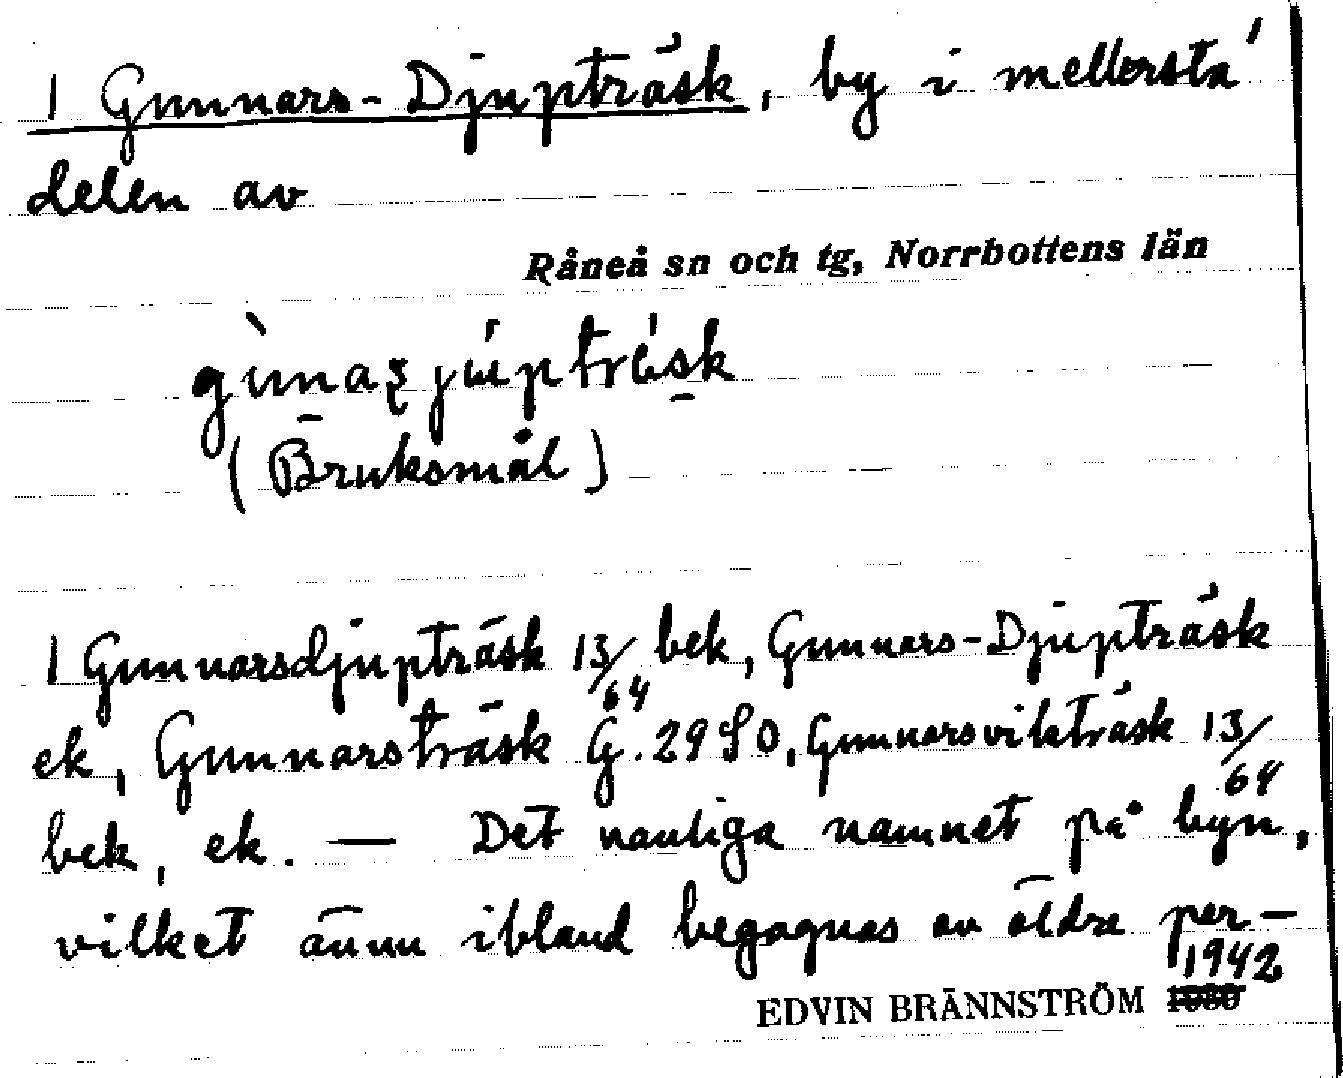 1 Gunnars-Djupträsk, by i mellersta
delen av
Råneå sn och tg, Norrbottens län
(Bruksmål)
1 Gunnarsdjupträsk 13/64 bek, Gunnars-Djupträsk
ek, Gunnarsträsk G. 2950, Gunnarsvikträsk 13/64
bek, ek. — Det vanliga namnet på byn,
vilket ännu ibland begagnas av äldre per-
1942
EDVIN BRÄNNSTRÖM 1930